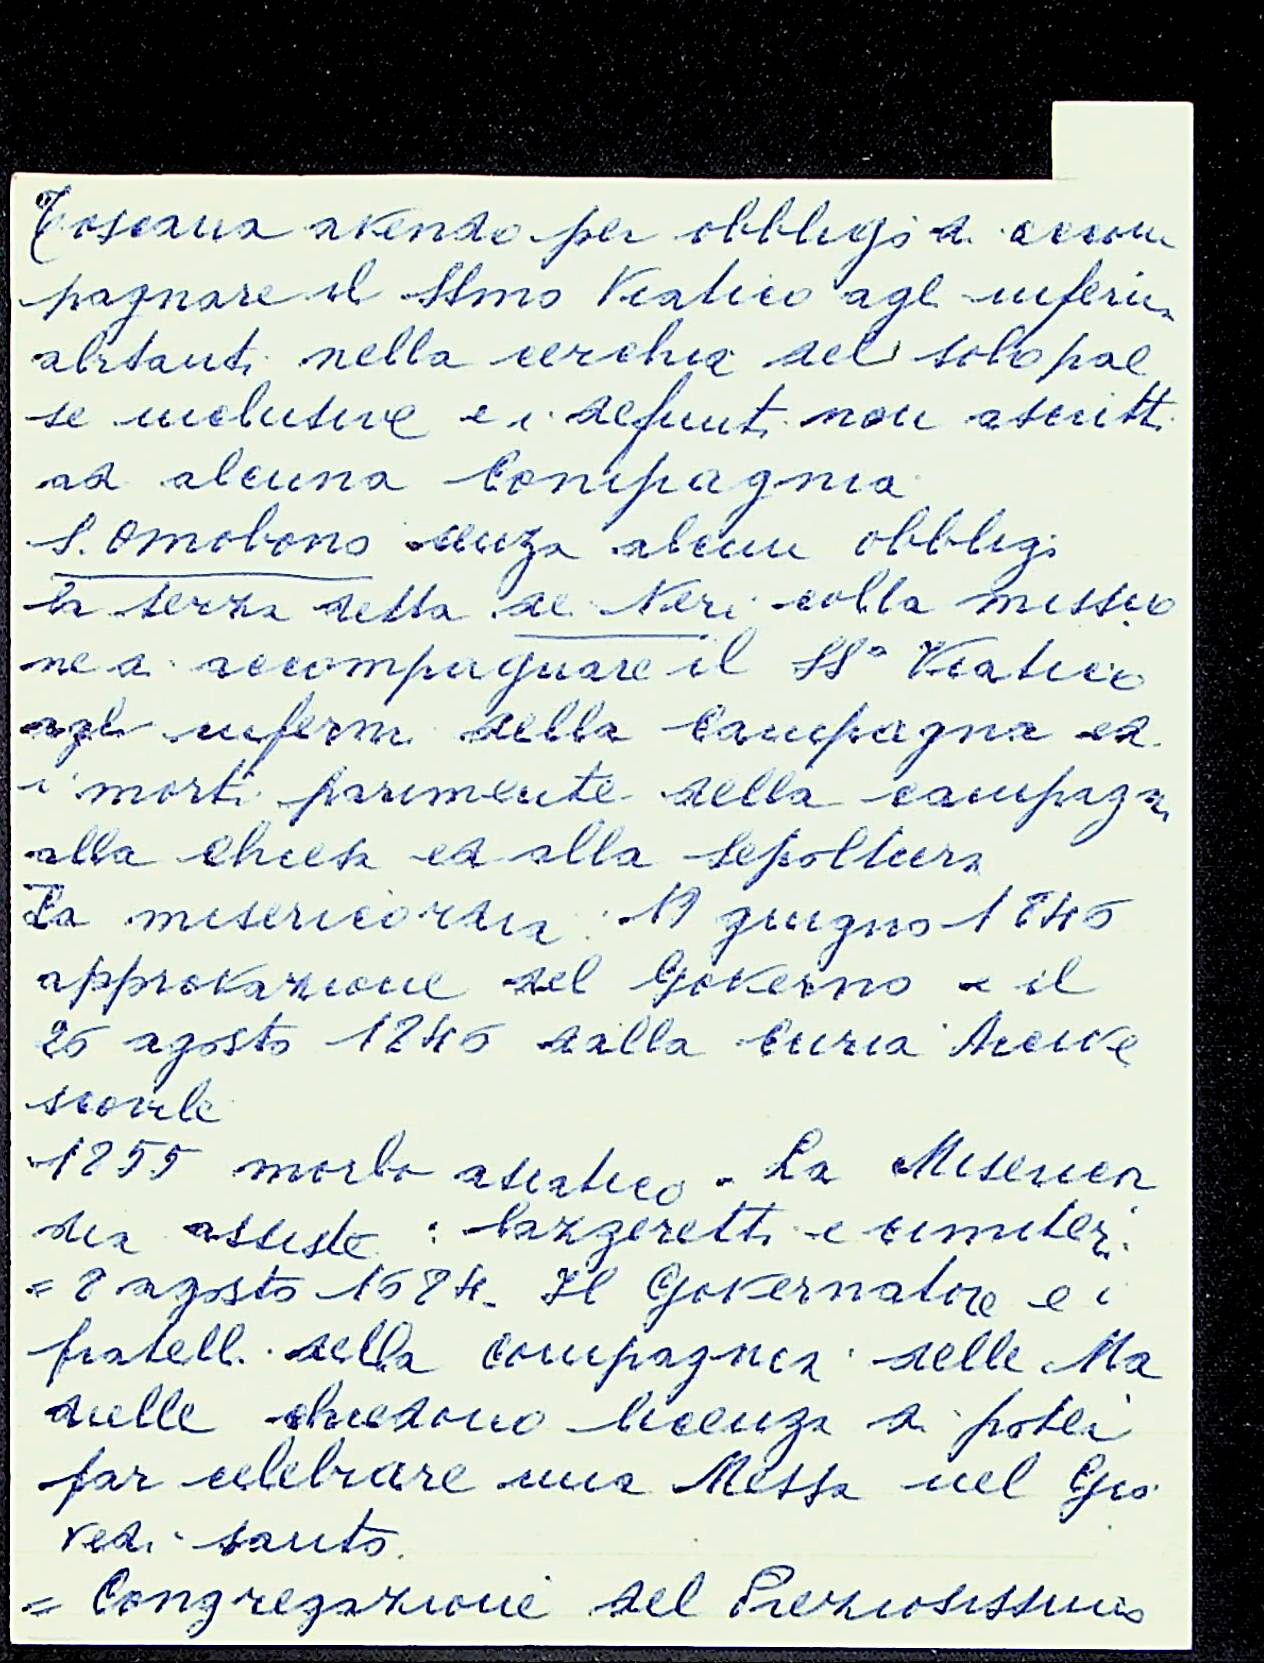 Toscana avendo per obbligo di accom
pagnare il SSmo Viatico agli infermi
abitanti nella cerchia del solo pae
se inclusive e i defunti non ascritti
ad alcuna Compagnia
S. Omobono senza alcun obbligo
la terza detta dei Neri colla missio
ne di accompagnare il SSo Viatico
agli infermi della Campagna ed
i morti parimente della campagna
alla Chiesa ed alla sepoltura
La misericordia: 19 giugno 1846
approvazione del Governo e il
26 agosto 1846 dalla Curia Arcive
scovile
1855 morbo asiatico - La Misericor
dia assiste: lazzeretti e cimiteri
= 8 agosto 1684. Il Governatore e i
fratelli della compagnia delle Ma
dielle chiedono licenza di poter
far celebrare una Messa nel Gio
vedì santo.
= Congregazione del Preziosissimo